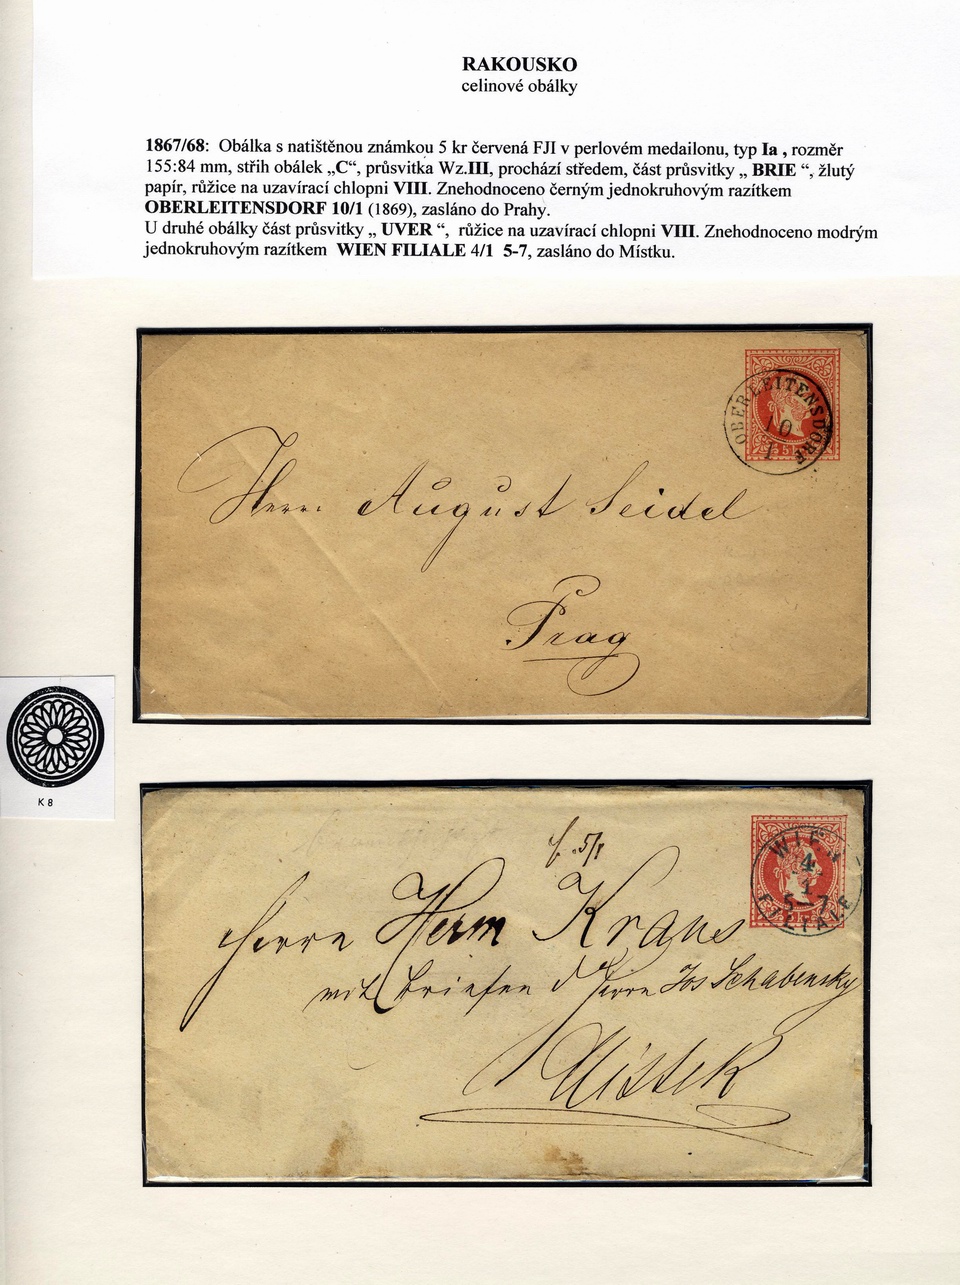 RAKOUSKO
celinové obálky
1867/68: Obálka s natištěnou známkou 5 kr červená FJI v perlovém medailonu, typ Ia , rozměr
155:84 mm, střih obálek „C“, průsvitka Wz.III, prochází středem, část průsvitky „ BRIE “, žlutý
papír, růžice na uzavírací chlopni VIII. Znehodnoceno černým jednokruhovým razítkem
OBERLEITENSDORF 10/1 (1869), zasláno do Prahy.
U druhé obálky část průsvitky „ UVER “, růžice na uzavírací chlopni VIII. Znehodnoceno modrým
jednokruhovým razítkem WIEN FILIALE 4/1 5-7, zasláno do Místku.
OBERLEITENSDORF
10
1
5
Herrn August Seidel
Prag
K 8
5/1
WIEN
4
1
5-7
FILIALE
Herrn Herm Kraus
mit Briefen d Herrn Jos Schabensky
Mistek